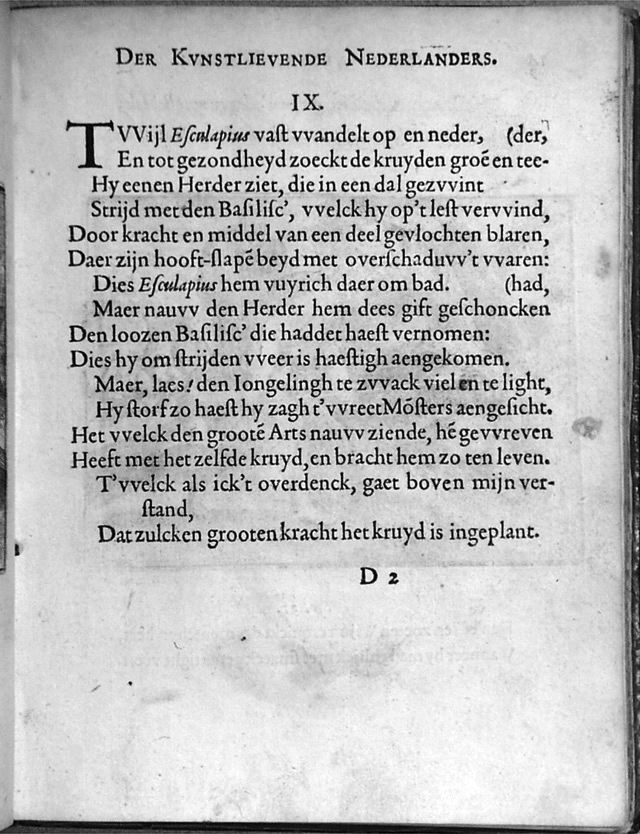 DER KVNSTLIEVENDE NEDERLANDERS.
IX.
TVVijl Eſculapius vaſt vvandelt op en neder, (der,
En tot gezondheyd zoeckt de kruyden groē en tee-
Hy eenen Herder ziet, die in een dal gezvvint
Strijd met den Baſiliſc', vvelck hy op't leſt vervvind,
Door kracht en middel van een deel gevlochten blaren,
Daer zijn hooft-ſlapē beyd met overſchaduvv't vvaren:
Dies Eſculapius hem vuyrich daer om bad. (had,
Maer nauvv den Herder hem dees gift geſchoncken
Den loozen Baſiliſc' die haddet haeſt vernomen:
Dies hy om ſtrijden vveer is haeſtigh aengekomen.
Maer, laes! den Iongelingh te zvvack viel en te light,
Hy ſtorf zo haeſt hy zagh t'vvreet Mōſters aengeſicht.
Het vvelck den grootē Arts nauvv ziende, hē gevvreven
Heeft met het zelfde kruyd, en bracht hem zo ten leven.
T'vvelck als ick't overdenck, gaet boven mijn ver-
ſtand,
Dat zulcken grooten kracht het kruyd is ingeplant.
D 2